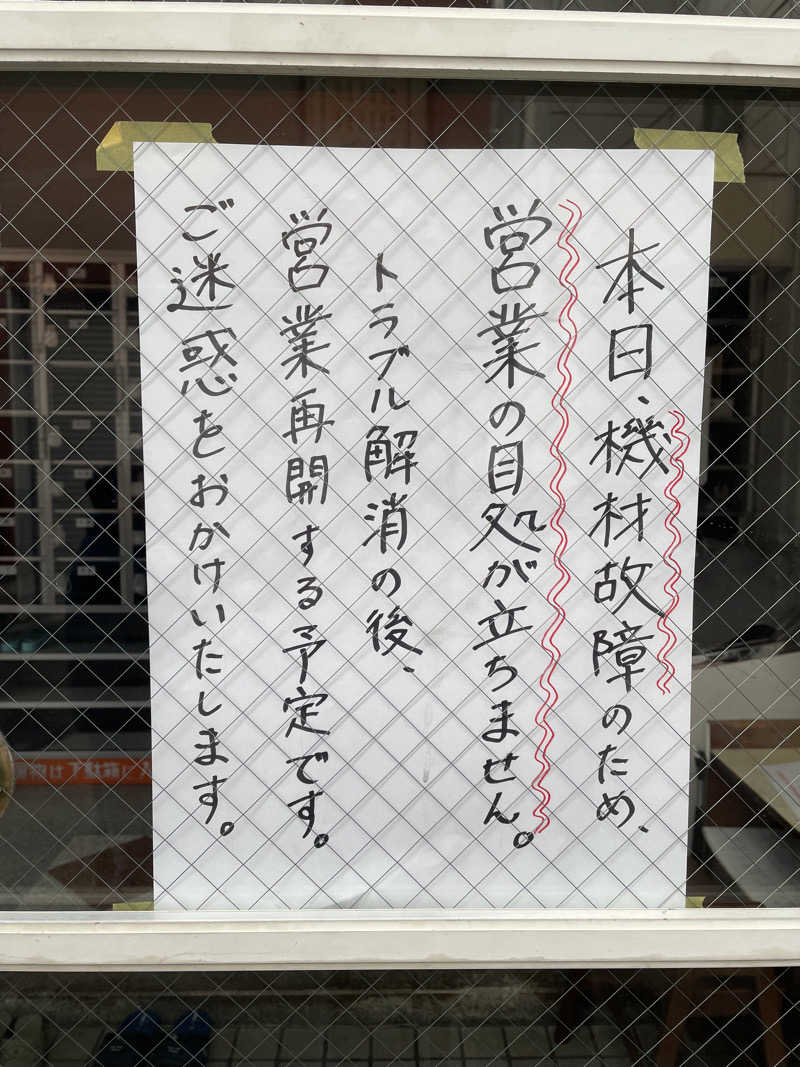 本日、機材故障のため、
営業の目処が立ちません。
トラブル解消の後、
営業再開する予定です。
ご迷惑をおかけいたします。